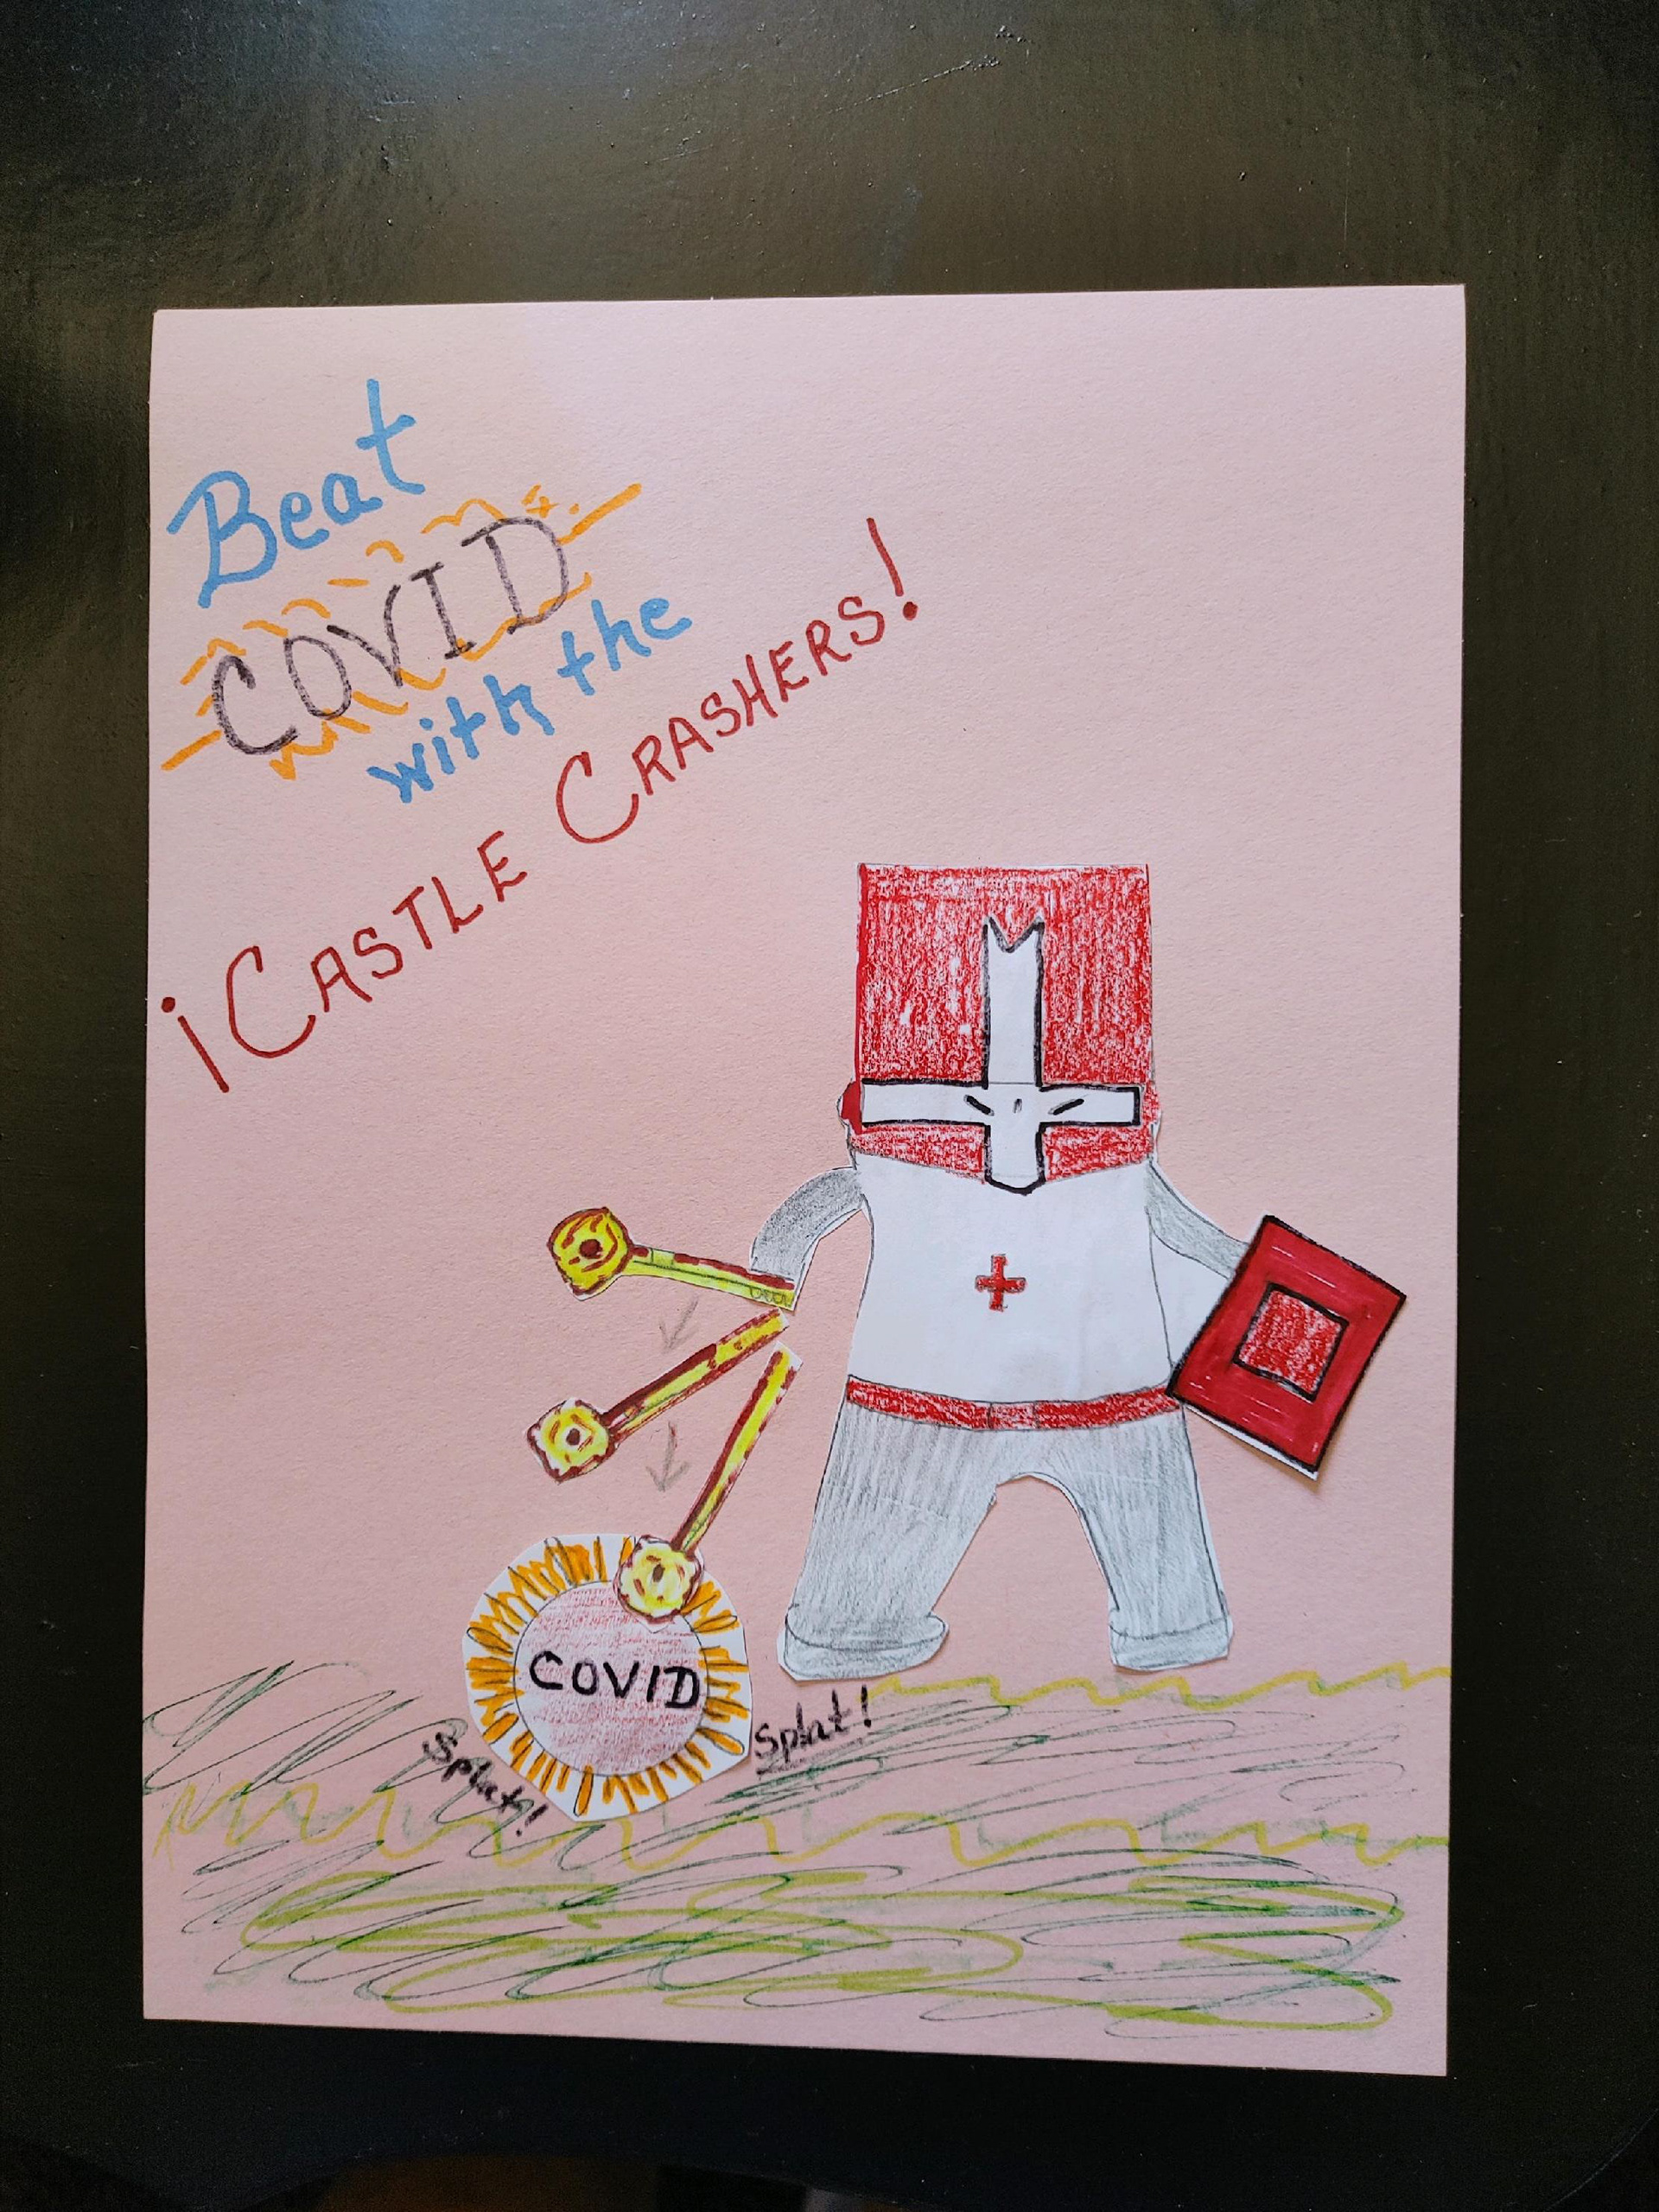 Beat
COVID
with the
¡CASTLE CRASHERS!
COVID
Splat!
Splat!